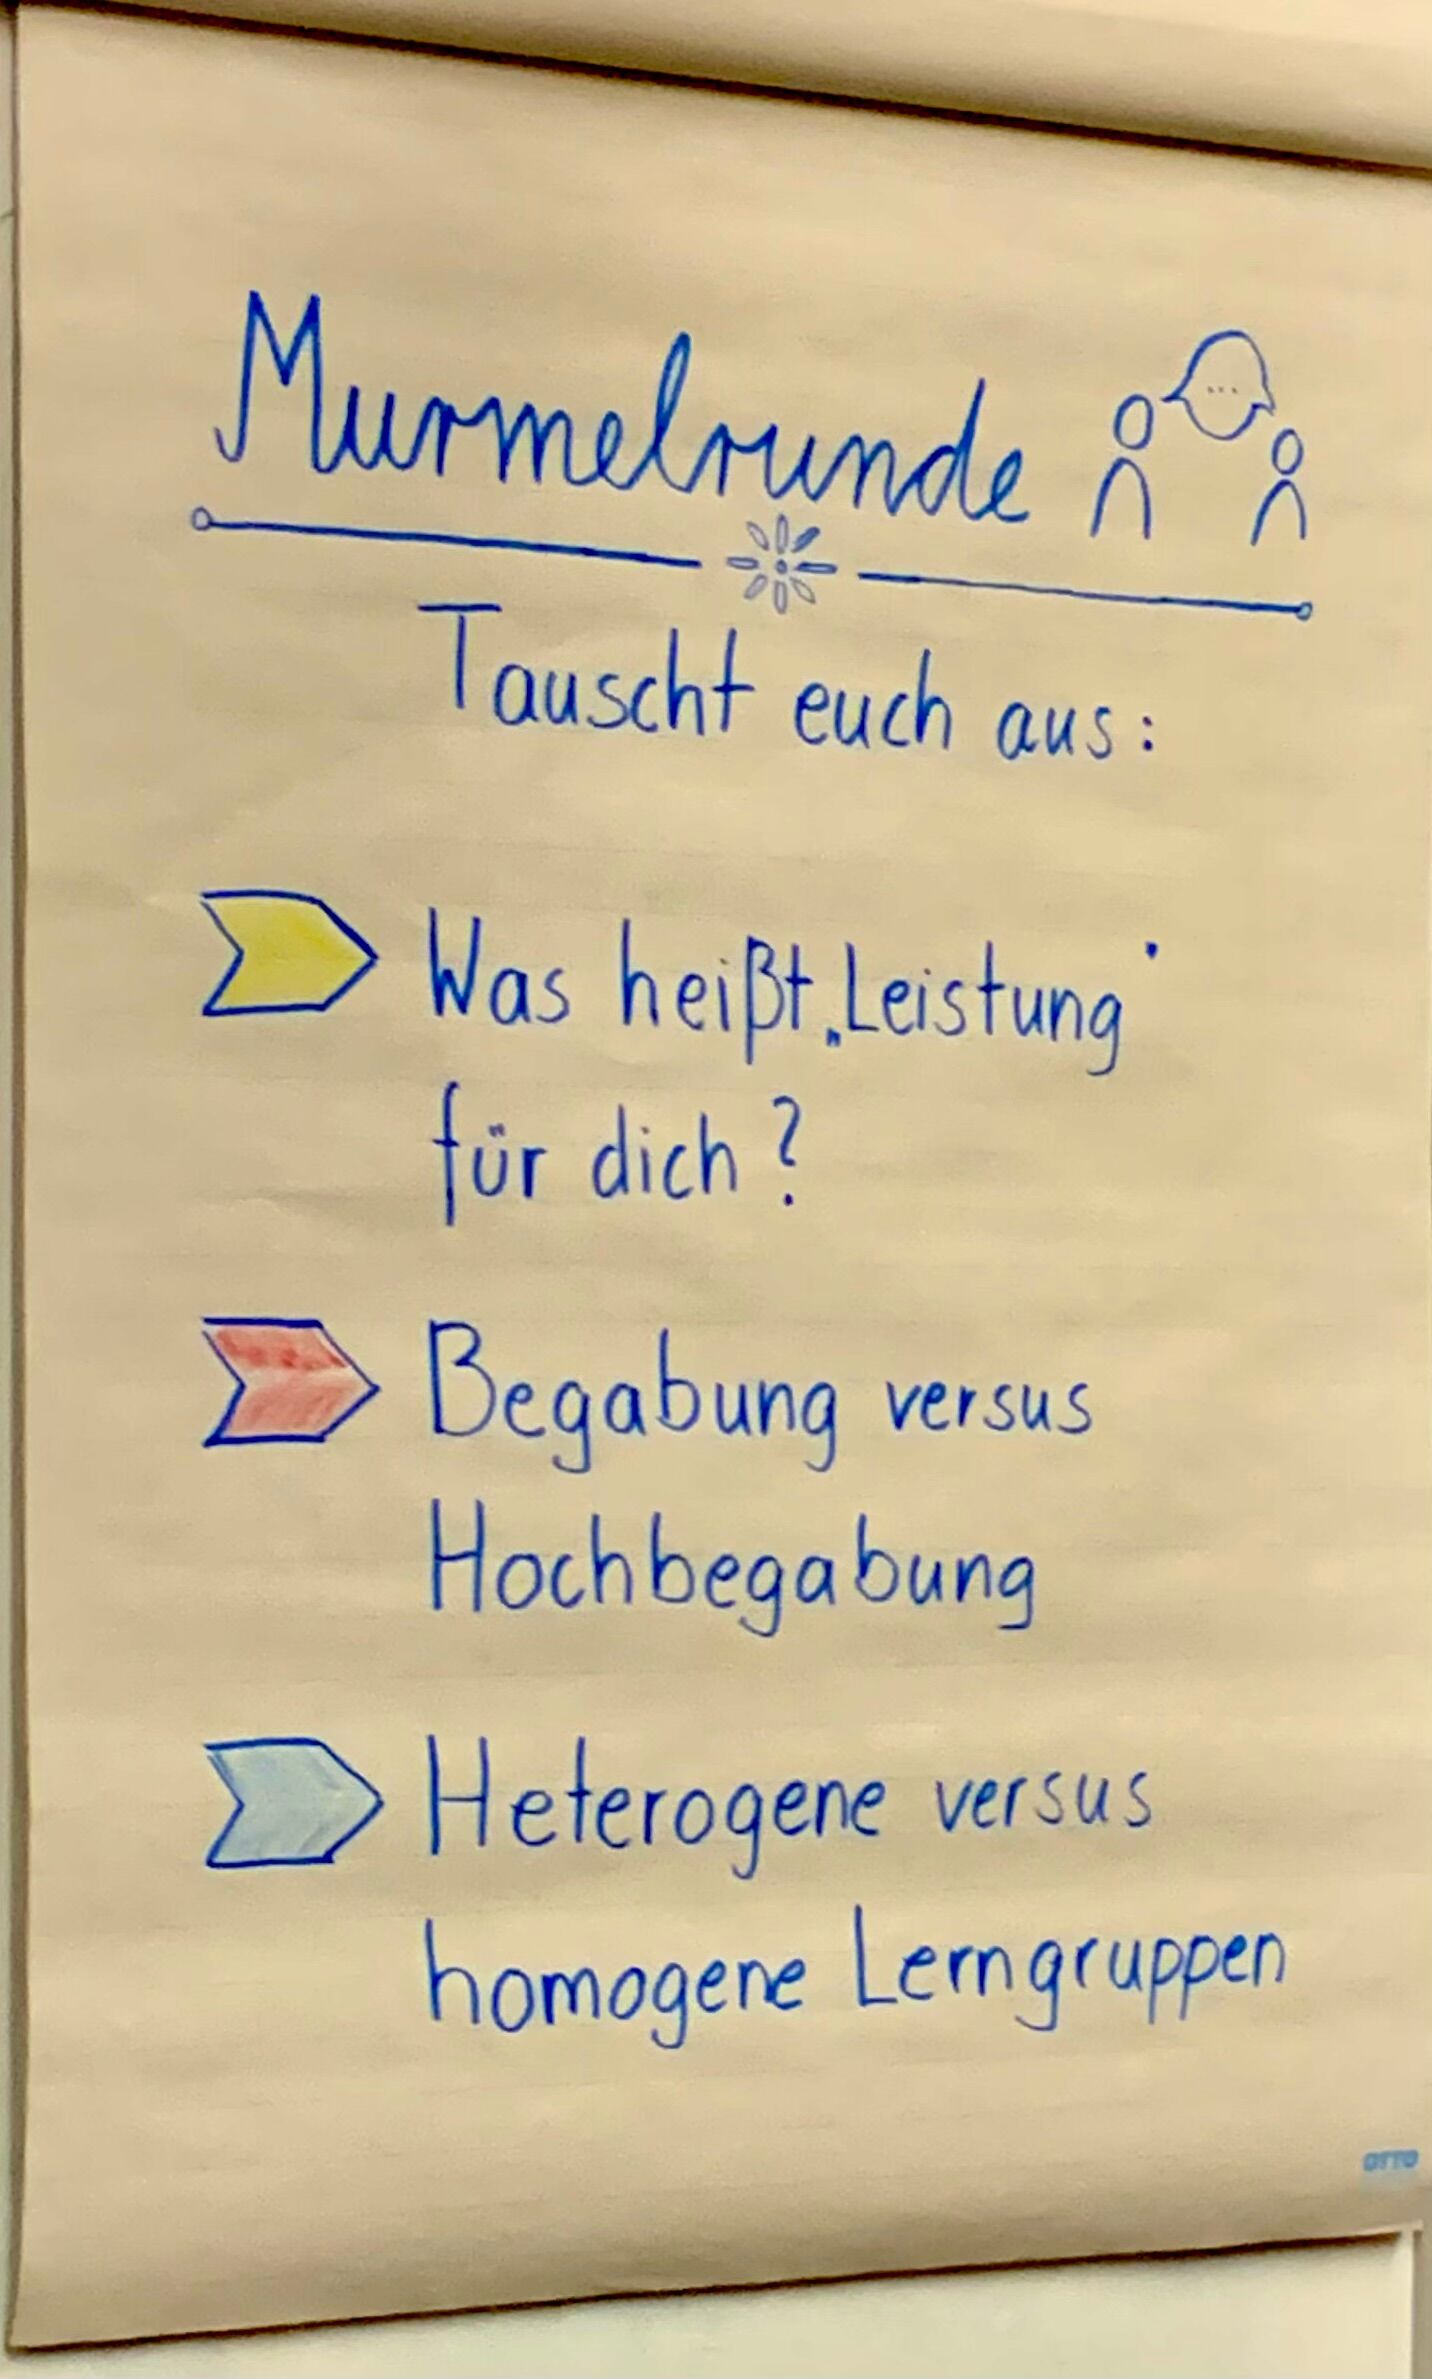 Murmelrunde
...
Tauscht euch aus:
Was heißt „Leistung“
für dich?
Begabung versus
Hochbegabung
Heterogene versus
homogene Lerngruppen
OTTO